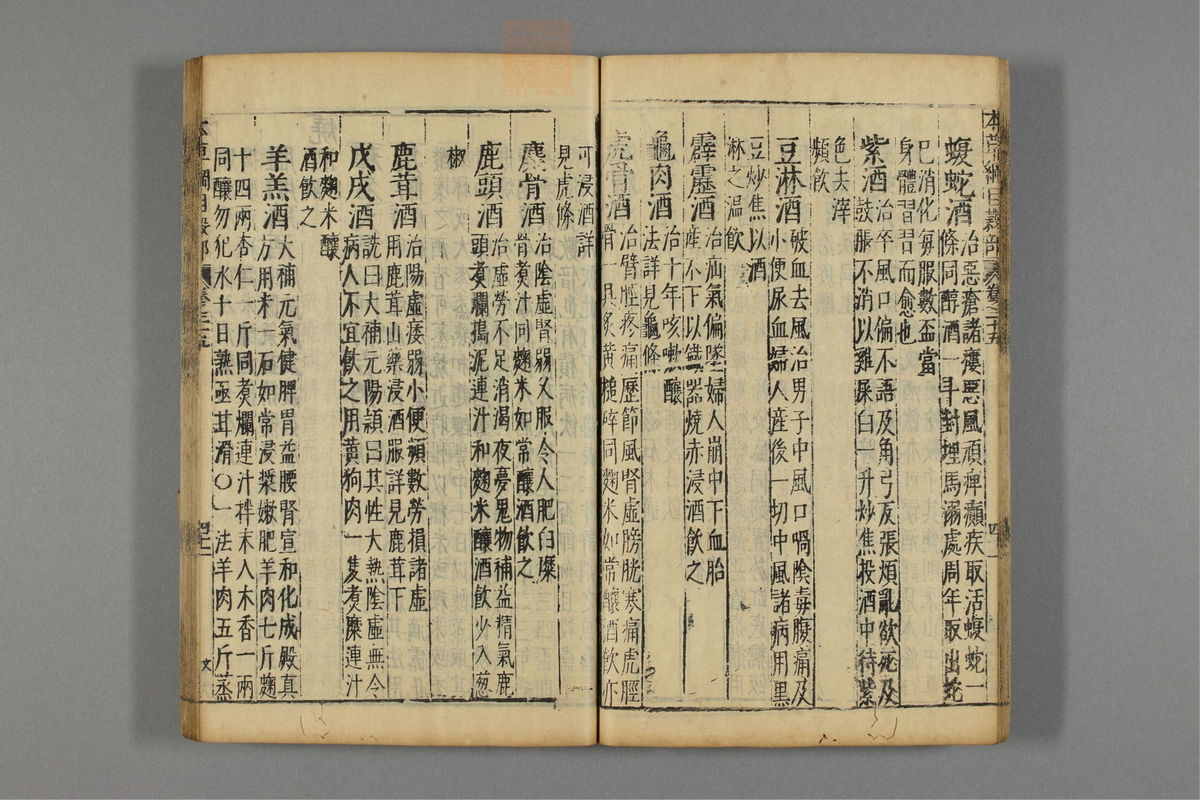 本草綱目穀部 卷二十五 四十一
蝮蛇酒 治惡瘡諸瘻惡風頑痺癲疾取活蝮蛇一
條同醇酒一斗封埋馬溺處周年取出蛇
已消化每服數盃當
身體習習而愈也
紫酒 治卒風口偏不語及角弓反張煩亂欲死及
鼓脹不消以雞屎白一升炒焦投酒中待紫
色去滓
頻飲
豆淋酒 破血去風治男子中風口喎陰毒腹痛及
小便尿血婦人產後一切中風諸病用黑
豆炒焦以酒
淋之温飲
霹靂酒 治疝氣偏墜婦人崩中下血胎
產不下以鐵器燒赤浸酒飲之
龜肉酒 治十年咳嗽釀
法詳見龜條
虎骨酒 治臂脛疼痛歷節風腎虛膀胱寒痛虎脛
骨一具炙黃槌碎同麴米如常釀酒飲亦
可浸酒詳
見虎條
麋骨酒 治陰虛腎弱久服令人肥白麋
骨煮汁同麴米如常釀酒飲之
鹿頭酒 治虛勞不足消渴夜夢鬼物補益精氣鹿
頭煮爛搗泥連汁和麴米釀酒飲少入葱
椒
鹿茸酒 治陽虛痿弱小便頻數勞損諸虛
用鹿茸山藥浸酒服詳見鹿茸下
戊戌酒 詵曰大補元陽頴曰其性大熱陰虛無冷
病人不宜飲之用黃狗肉一隻煮糜連汁
和麴米釀
酒飲之
羊羔酒 大補元氣健脾胃益腰腎宣和化成殿真
方用米一石如常浸漿嫩肥羊肉七斤麴
十四兩杏仁一斤同煮爛連汁拌末入木香一兩
同釀勿犯水十日熟亟甘滑〇一法羊肉五斤蒸
本草綱目穀部 卷二十五 四十二 文